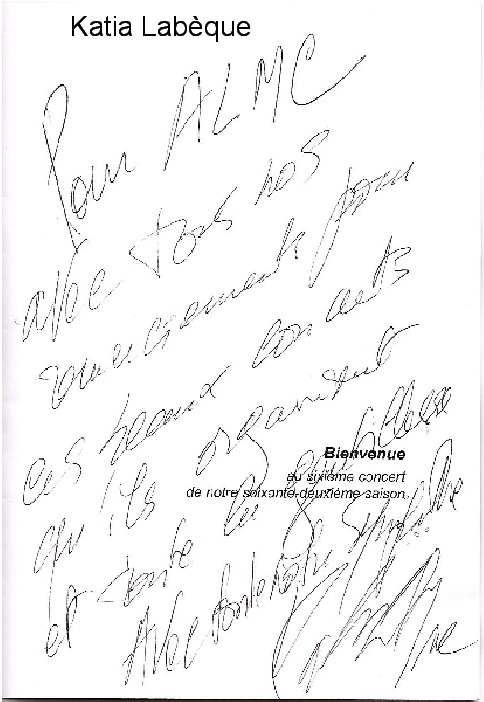 Katia Labèque
Pour ALMC
avec tous nos
remerciements pour
ces beaux concerts
qu'ils organisent
Bienvenue
au sixième concert
de notre soixante-deuxième saison
et toute la
Avec toute notre